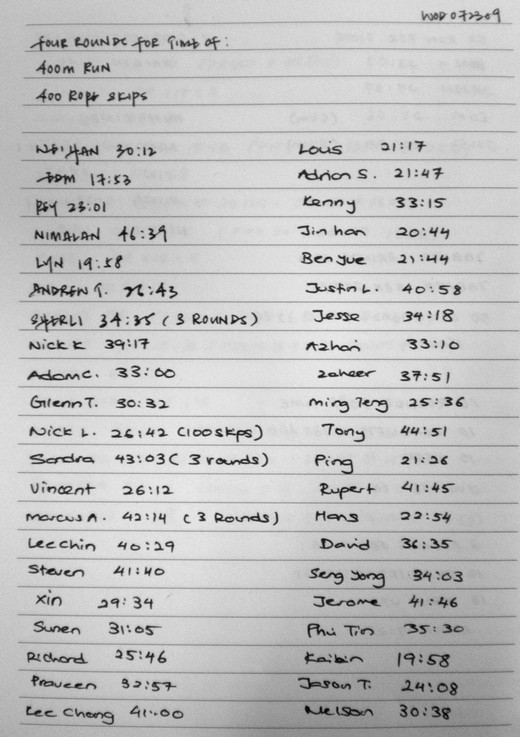 WOD 072309
FOUR ROUNDS FOR TIME OF:
400m RUN
400 ROPE SKIPS
WEIYAN 30:12
17:53
PSY 23:01
NIMALAN 46:39
LYN 19:58
ANDREW T. :43
SHERLI 34:35 (3 ROUNDS)
Nick K 39:17
Adam C. 33:00
Glenn T. 30:32
Nick L. 26:42 (100 skps)
Sandra 43:03 (3 rounds)
Vincent 26:12
Marcus A. 42:14 (3 Rounds)
Lee Chin 40:29
Steven 41:40
Xin 29:34
Sunen 31:05
Richard 25:46
Praveen 32:57
Kee Chong 41:00
Louis 21:17
Adrian S. 21:47
Kenny 33:15
Jin han 20:44
Ben yue 21:44
Justin L. 40:58
Jesse 34:18
Azhan 33:10
Zaheer 37:51
ming Teng 25:36
Tony 44:51
Ping 21:26
Rupert 41:45
Hans 22:54
David 36:35
Seng yong 34:03
Jerome 41:46
Phu Tin 35:30
Kaibin 19:58
Jason T. 24:08
Nelson 30:38